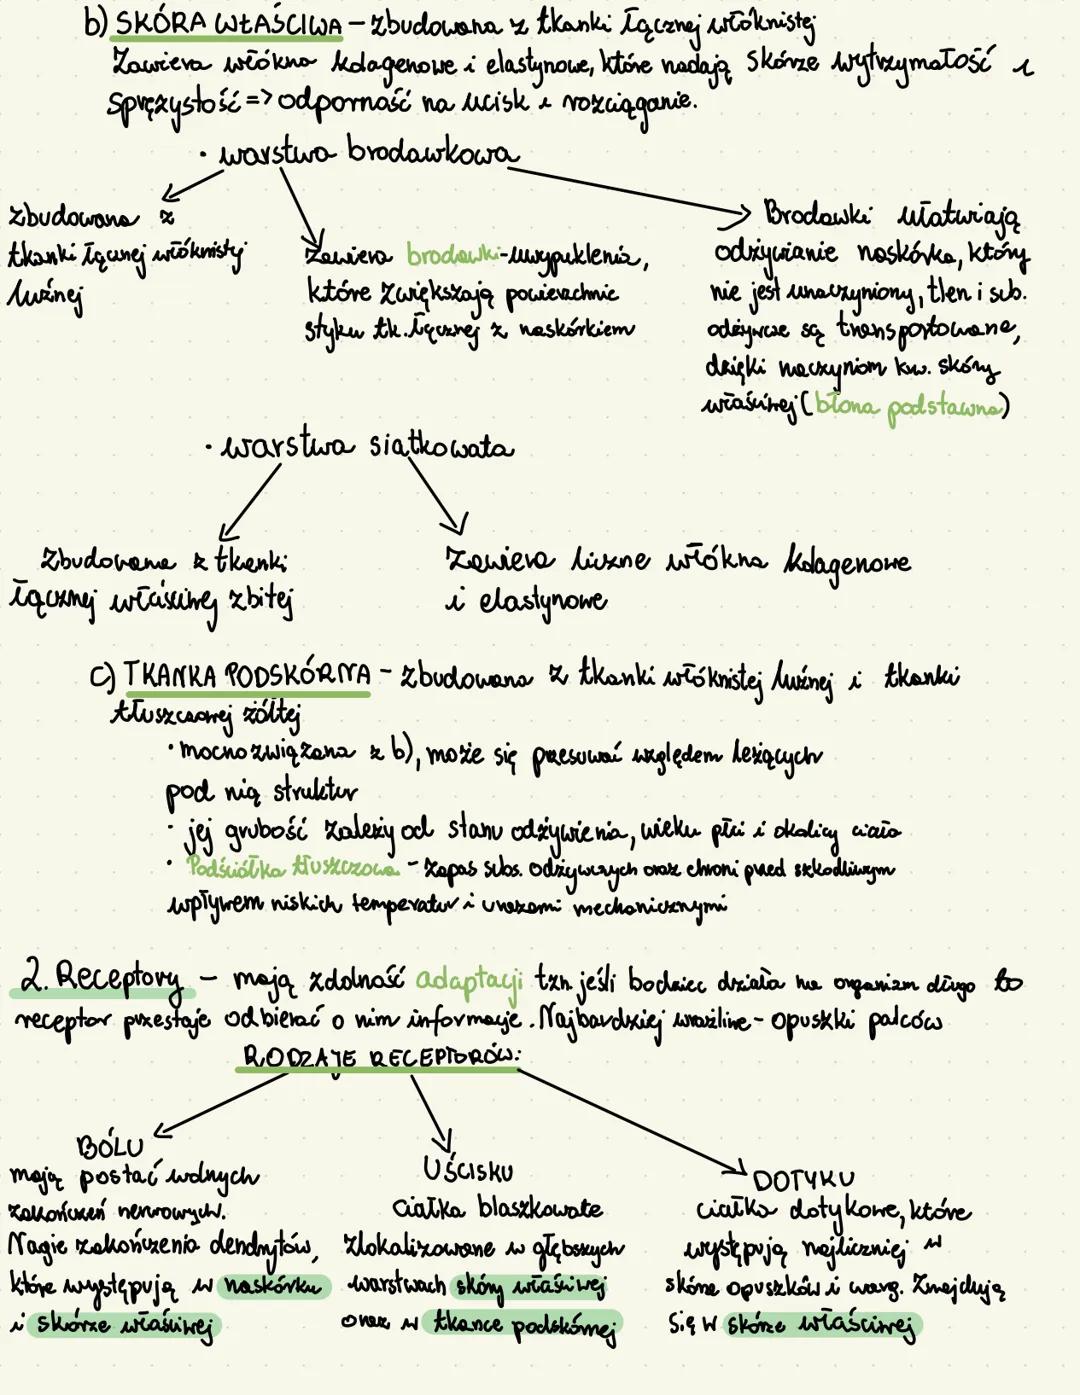 b) SKÓRA WŁAŚCIWA – zbudowana z tkanki łącznej włóknistej
Zawiera włókna kolagenowe i elastynowe, które nadają skórze wytrzymałość i
sprężystość => odporność na ucisk i rozciąganie.
· warstwa brodawkowa
zbudowana z
tkanki łącznej włóknistej
luźnej
Zawiera brodawki-uwypuklenia,
które zwiększają powierzchnie
styku tk. łącznej z naskórkiem
Brodawki ułatwiają
odżywianie naskórka, który
nie jest unaczyniony, tlen i sub.
odżywcze są transportowane,
dzięki naczyniom krw. skóry
właściwej (błona podstawna)
· warstwa siatkowata
Zbudowana z tkanki
łącznej właściwej zbitej
Zawiera liczne włókna kolagenowe
i elastynowe
c) TKANKA PODSKÓRNA – zbudowana z tkanki włóknistej luźnej i tkanki
tłuszczowej żółtej
· mocno związana z b), może się przesuwać względem leżących
pod nią struktur
· jej grubość zależy od stanu odżywienia, wieku płci i okolicy ciała
· Podściółka tłuszczowa – zapas subs. odżywczych oraz chroni przed szkodliwym
wpływem niskich temperatur i urazami mechanicznymi
2. Receptory – mają zdolność adaptacji tzn. jeśli bodziec działa na organizm długo to
receptor przestaje odbierać o nim informacje. Najbardziej wrażliwe - opuszki palców
RODZAJE RECEPTORÓW:
BÓLU
mają postać wolnych
zakończeń nerwowych.
Nagie zakończenia dendrytów,
które występują w naskórku
i skórze właściwej
UŚCISKU
ciałka blaszkowate
zlokalizowane w głębszych
warstwach skóry właściwej
oraz w tkance podskórnej
DOTYKU
ciałka dotykowe, które
występują najliczniej w
skórze opuszków i warg. Znajdują
się w skórze właściwej